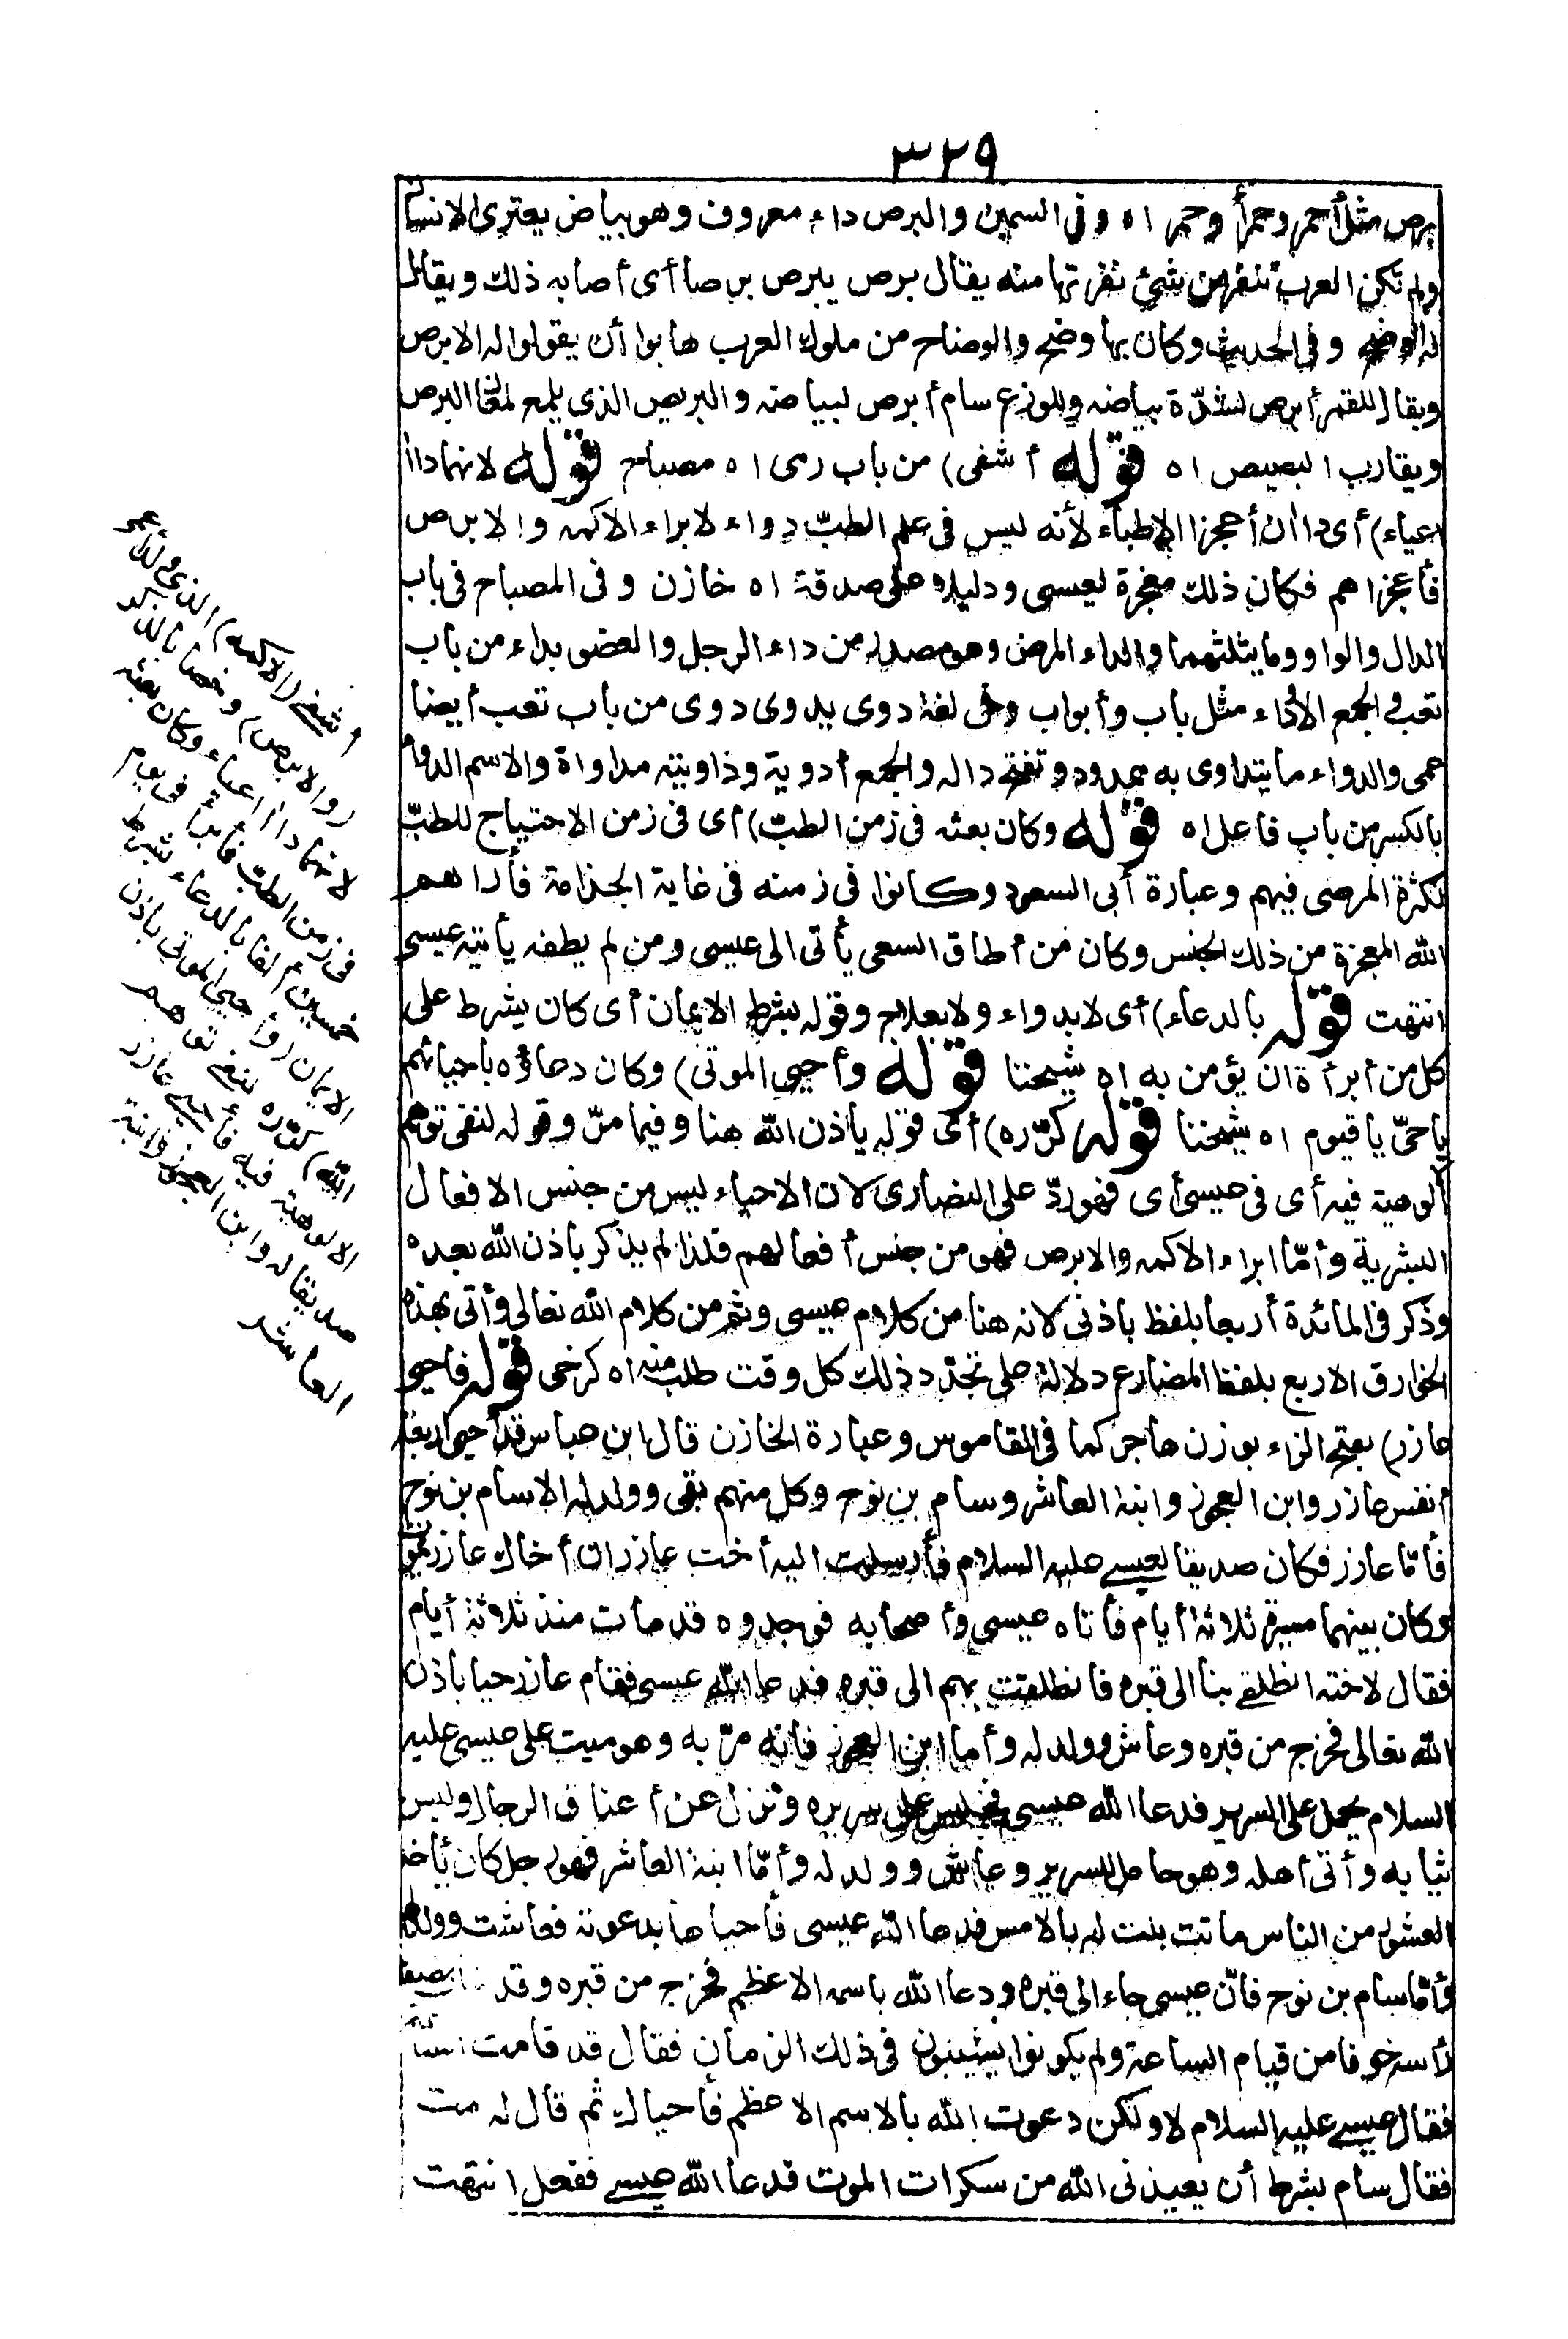 ٣٢٩
برص مثل أحمر وحمرأ وحمر اه وفى السمين والبرص داء معروف وهو بياض يعترى الانسان
ولم تكن العرب تنفر من شئ نفرتها منه يقال برص يبرص برصا أى أصابه ذلك ويقال
له الوضح وفى الحديث وكان بها وضح والوضاح من ملوك العرب هابوا أن يقولوا له الابرص
ويقال للقمر أبرص لشدّة بياضه وللوزغ سام أبرص لبياضه والبريص الذى يلمع لمعان البرص
ويقارب البصيص اه قوله أشفى) من باب رمى اه مصباح قوله لانهما داآ
اعياء) أى داآن أعجزا الاطباء لأنه ليس فى علم الطبّ دواء لابراء الاكمه والابرص
فأعجزاهم فكان ذلك معجزة لعيسى ودليلا على صدقه اه خازن وفى المصباح فى باب
الدال والواو وما يثلثهما والداء المرض وهو مصدر من داء الرجل والعضو يداء من باب
تعب والجمع الادواء مثل باب وأبواب وفى لغة دوى يدوى دوى من باب تعب أيضا
عمى والدواء ما يتداوى به ممدود وتفتح داله والجمع أدوية وداويته مداواة والاسم الدواء
بالكسر من باب قاعل اه قوله وكان بعثه فى زمن الطبّ) أى فى زمن الاحتياج للطبّ
لكثرة المرضى فيهم وعبارة أبى السعود وكانوا فى زمنه فى غاية الحذاقة فأراهم
الله المعجزة من ذلك الجنس وكان من أطاق السعى يأتى الى عيسى ومن لم يطقه يأتيه عيسى
انتهت قوله بالدعاء) أى لا بدواء ولا بعلاج وقوله بشرط الايمان أى كان يشرط على
كل من أبرأه ان يؤمن به اه شيخنا قوله وأحيى الموتى) وكان دعاؤه باحيائهم
يا حىّ يا قيوم اه شيخنا قوله كرّره) أى قوله باذن الله هنا وفيما مرّ وقوله لنفى توهم
ألوهية فيه أى فى عيسى أى فهو ردّ على النصارى لان الاحياء ليس من جنس الافعال
البشرية وأمّا ابراء الاكمه والابرص فهو من جنس أفعالهم فلذا لم يذكر باذن الله بعده
وذكر فى المائدة أربعا بلفظ باذنى لانه هنا من كلام عيسى وثم من كلام الله تعالى وأتى بهذه
الخوارق الاربع بلفظ المضارع دلالة على تجدّد ذلك كل وقت طلب منه اه كرخى قوله فاحيى
عازر) بفتح الزاء بوزن هاجر كما فى القاموس وعبارة الخازن قال ابن عباس قد أحيى أربعة
أنفس عازر وابن العجوز وابنة العاشر وسام بن نوح وكل منهم بقى وولد له الا سام بن نوح
فأمّا عازر فكان صديقا لعيسى عليه السلام فأرسلت اليه أخت عازر ان أخاك عازر يموت
وكان بينهما مسيرة ثلاثة أيام فأتاه عيسى وأصحابه فوجدوه قد مات منذ ثلاثة أيام
فقال لاخته انطلقى بنا الى قبره فانطلقت بهم الى قبره فدعا الله عيسى فقام عازر حيا باذن
الله تعالى فخرج من قبره وعاش وولد له وأما ابن العجوز فانه مرّ به وهو ميت على عيسى عليه
السلام يحمل على السرير فدعا الله عيسى فجلس على سريره ونزل عن أعناق الرجال ولبس
ثيابه وأتى أهله وهو حامل السرير وعاش وولد له وأمّا ابنة العاشر فهو رجل كان يأخذ
العشور من الناس ماتت بنت له بالامس فدعا الله عيسى فأحياها بدعوته فعاشت وولد لها
وأمّا سام بن نوح فانّ عيسى جاء الى قبره ودعا الله باسمه الاعظم فخرج من قبره وقد
رأسه خوفا من قيام الساعة ولم يكونوا يشيبون فى ذلك الزمان فقال قد قامت
فقال عيسى عليه السلام لا ولكن دعوت الله بالاسم الاعظم فأحياك ثم قال له مت
فقال سام بشرط أن يعيذنى الله من سكرات الموت فدعا الله عيسى ففعل انتهت
أشفى (الاكمه) الذى ولد أعمى
(والابرص) وخصا بالذكر
لانهما داآ اعياء وكان بعثه
فى زمن الطبّ فأبرأ فى يوم
خمسين ألفا بالدعاء بشرط
الايمان (وأحيى الموتى باذن
الله) كرّره لنفى توهم
الالوهية فيه فأحيى عازر
صديقا له وابن العجوز وابنة
العاشر